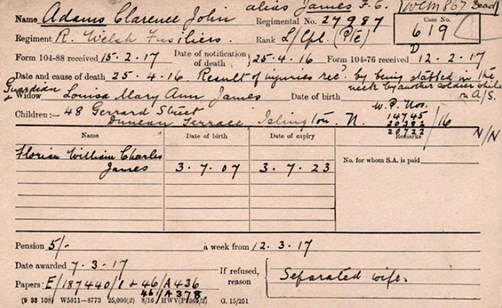 Name Adams Clarence John alias James F.C. (WCM 867 Dead)
Regiment R. Welsh Fusiliers. Regimental No. 27987 Rank L/Cpl. (Pte) Case No. 619 D
Form 104-88 received 15.2.17 Date of notification of death 25.4.16 Form 104-76 received 12.2.17
Date and cause of death 25.4.16. Result of injuries rec. by being stabbed in the neck by another soldier while on A/S
Guardian + Widow Louisa Mary Ann James Date of birth
Children:— 48 Gerrard Street Duncan Terrace, Islington, N. W.P. Nos. 14745 20382 20722 /16
Name Date of birth Date of expiry Remarks N/N
Florian William Charles James 3.7.07 3.7.23 No. for whom S.A. is paid
Pension 5/- a week from 12.3.17
Date awarded 7.3.17
Papers: E/187440/1 + 46/A436 46/A378 If refused, reason Separated wife.
(9 38 108) W5811—8773 25,000(2) 8/16 G. 15/251